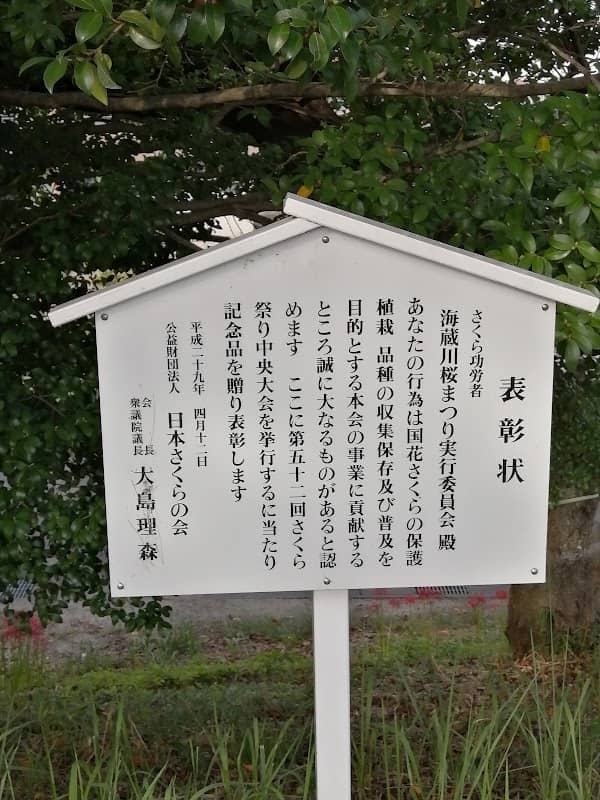 表彰状
さくら功労者
海蔵川桜まつり実行委員会 殿
あなたの行為は国花さくらの保護
植栽 品種の収集保存及び普及を
目的とする本会の事業に貢献する
ところ誠に大なるものがあると認
めます ここに第五十二回さくら
祭り中央大会を挙行するに当たり
記念品を贈り表彰します
平成二十九年 四月十二日
公益財団法人 日本さくらの会
会長
衆議院議長 大島理森